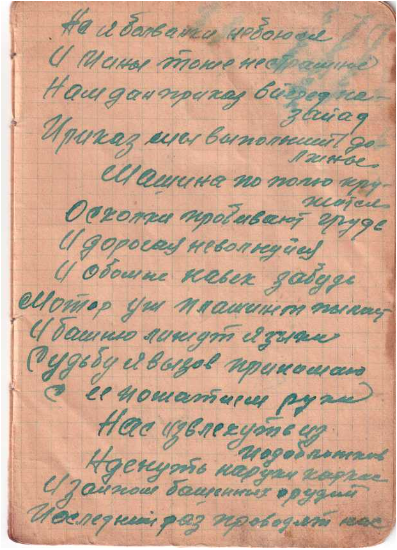 На я болванки небоюся
И Мины тоже нестрашие
Нам дан приказ вперод на
запад
Приказ мы выполнит до-
лжны.
Машина по полю кру-
жится
Осколки пробивают грудь
И дорогая неволнуйся
И обо мне навек забудь
Мотор уж пламинем пылает
И башню лижут языки
Судьбу я вызов принимаю
С ее пожатием руки
Нас извлекуть из
подобломков
Яденуть наруки каркас
И залпом башенных орудий
Последний раз проводят нас